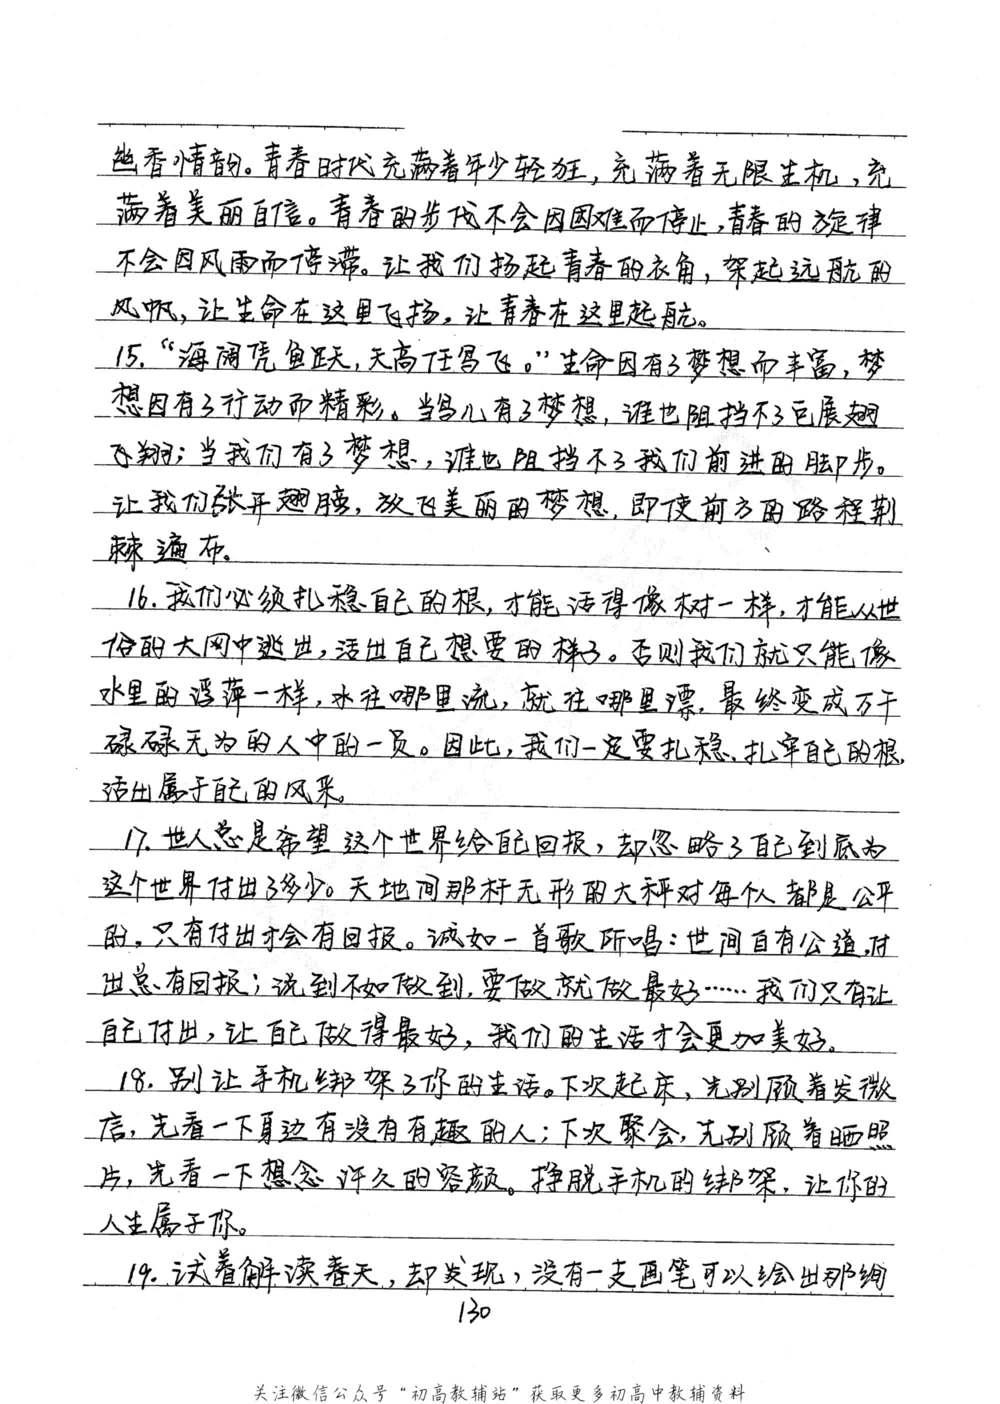 幽香情韵。青春时代充满着年少轻狂，充满着无限生机，充
满着美丽自信。青春的步伐不会因困难而停止，青春的旋律
不会因风雨而停滞。让我们扬起青春的衣角，架起远航的
风帆，让生命在这里飞扬。让青春在这里起航。
15．“海阔凭鱼跃，天高任鸟飞。”生命因有了梦想而丰富，梦
想因有了行动而精彩。当鸟儿有了梦想，谁也阻挡不了它展翅
飞翔；当我们有了梦想，谁也阻挡不了我们前进的脚步。
让我们张开翅膀，放飞美丽的梦想，即使前方的路程荆
棘遍布。
16．我们必须扎稳自己的根，才能活得像树一样，才能从世
俗的大网中逃出，活出自己想要的样子。否则我们就只能像
水里的浮萍一样，水往哪里流，就往哪里漂，最终变成万千
碌碌无为的人中的一员。因此，我们一定要扎稳、扎牢自己的根，
活出属于自己的风采。
17．世人总是希望这个世界给自己回报，却忽略了自己到底为
这个世界付出了多少。天地间那杆无形的大秤对每个人都是公平
的。只有付出才会有回报。诚如一首歌所唱：世间自有公道，付
出总有回报；说到不如做到，要做就做最好……我们只有让
自己付出，让自己做得最好，我们的生活才会更加美好。
18．别让手机绑架了你的生活。下次起床，先别顾着发微
信，先看一下身边有没有有趣的人；下次聚会，先别顾着晒照
片，先看一下想念许久的容颜。挣脱手机的绑架，让你的
人生属于你。
19．试着解读春天，却发现，没有一支画笔可以绘出那绚
130
关注微信公众号“初高教辅站”获取更多初高中教辅资料